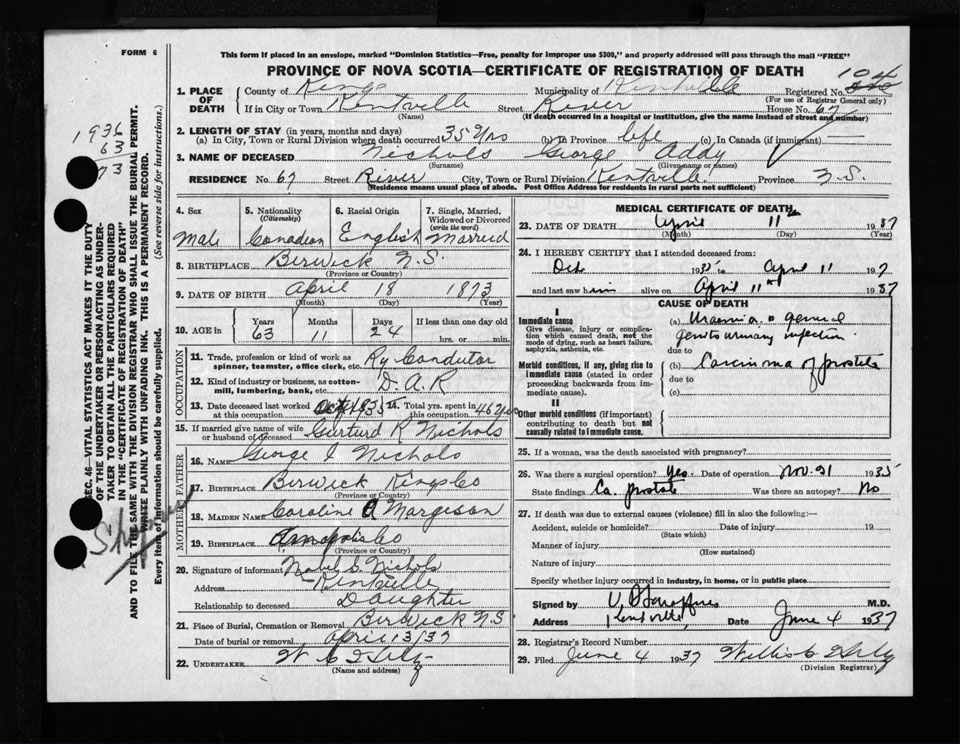 FORM 6
This form if placed in an envelope, marked "Dominion Statistics—Free, penalty for improper use $300," and properly addressed will pass through the mail "FREE"
PROVINCE OF NOVA SCOTIA—CERTIFICATE OF REGISTRATION OF DEATH
104
1. PLACE OF DEATH
County of Kings Municipality of Kentville Registered No.
(For use of Registrar General only)
If in City or Town Kentville Street River House No. 67
(Name) (If death occurred in a hospital or institution, give the name instead of street and number)
2. LENGTH OF STAY (in years, months and days)
(a) In City, Town or Rural Division where death occurred 35 yrs (b) In Province life (c) In Canada (if immigrant)
3. NAME OF DECEASED Nichols George Addy
(Surname) (Given name or names)
RESIDENCE No. 67 Street River City, Town or Rural Division Kentville Province N.S.
(Residence means usual place of abode. Post Office Address for residents in rural parts not sufficient)
1936
63
73
SEC. 46—VITAL STATISTICS ACT MAKES IT THE DUTY
OF THE UNDERTAKER OR PERSON ACTING AS UNDER-
TAKER TO OBTAIN ALL THE PARTICULARS REQUIRED
IN THE "CERTIFICATE OF REGISTRATION OF DEATH"
AND TO FILE THE SAME WITH THE DIVISION REGISTRAR WHO SHALL ISSUE THE BURIAL PERMIT.
WRITE PLAINLY WITH UNFADING INK. THIS IS A PERMANENT RECORD.
Every item of information should be carefully supplied. (See reverse side for instructions.)
4. Sex 5. Nationality (Citizenship) 6. Racial Origin 7. Single, Married, Widowed or Divorced (write the word)
Male Canadian English Married
8. BIRTHPLACE Berwick N.S.
(Province or Country)
9. DATE OF BIRTH April 18 1873
(Month) (Day) (Year)
10. AGE in Years Months Days If less than one day old
63 11 24 hrs. or min.
OCCUPATION
11. Trade, profession or kind of work as spinner, teamster, office clerk, etc. Ry Condutor
12. Kind of industry or business, as cotton-mill, lumbering, bank, etc. D.A.R
13. Date deceased last worked at this occupation Oct 1935 14. Total yrs. spent in this occupation 46 yrs
15. If married give name of wife or husband of deceased Gurturd R Nichols
FATHER
16. NAME George I Nichols
17. BIRTHPLACE Berwick Kings Co
(Province or Country)
MOTHER
18. MAIDEN NAME Caroline A Margeson
19. BIRTHPLACE Annapolis Co
(Province or Country)
20. Signature of informant Mabel S. Nichols
Address Kentville
Relationship to deceased Daughter
21. Place of Burial, Cremation or Removal Berwick N.S.
Date of burial or removal April 13/37
22. UNDERTAKER W C
(Name and address)
MEDICAL CERTIFICATE OF DEATH
23. DATE OF DEATH April 11th 1937
(Month) (Day) (Year)
24. I HEREBY CERTIFY that I attended deceased from:
Oct 1935 to April 11 1937
and last saw him alive on April 11th 1937
CAUSE OF DEATH
I
Immediate cause
Give disease, injury or complication which caused death, not the mode of dying, such as heart failure, asphyxia, asthenia, etc.
(a) Uraemia & general
genito urinary infection
due to
Morbid conditions, if any, giving rise to immediate cause (stated in order proceeding backwards from immediate cause).
(b) Carcinoma of prostate
due to
(c)
II
Other morbid conditions (if important) contributing to death but not causally related to immediate cause.
25. If a woman, was the death associated with pregnancy?
26. Was there a surgical operation? Yes. Date of operation Nov. 21 1935
State findings Ca. prostate Was there an autopsy? No
27. If death was due to external causes (violence) fill in also the following:—
Accident, suicide or homicide? Date of injury 19
(State which)
Manner of injury
(How sustained)
Nature of injury
Specify whether injury occurred in industry, in home, or in public place
Signed by M.D.
Address Kentville Date June 4 1937
28. Registrar's Record Number
29. Filed June 4 1937 Willis C
(Division Registrar)